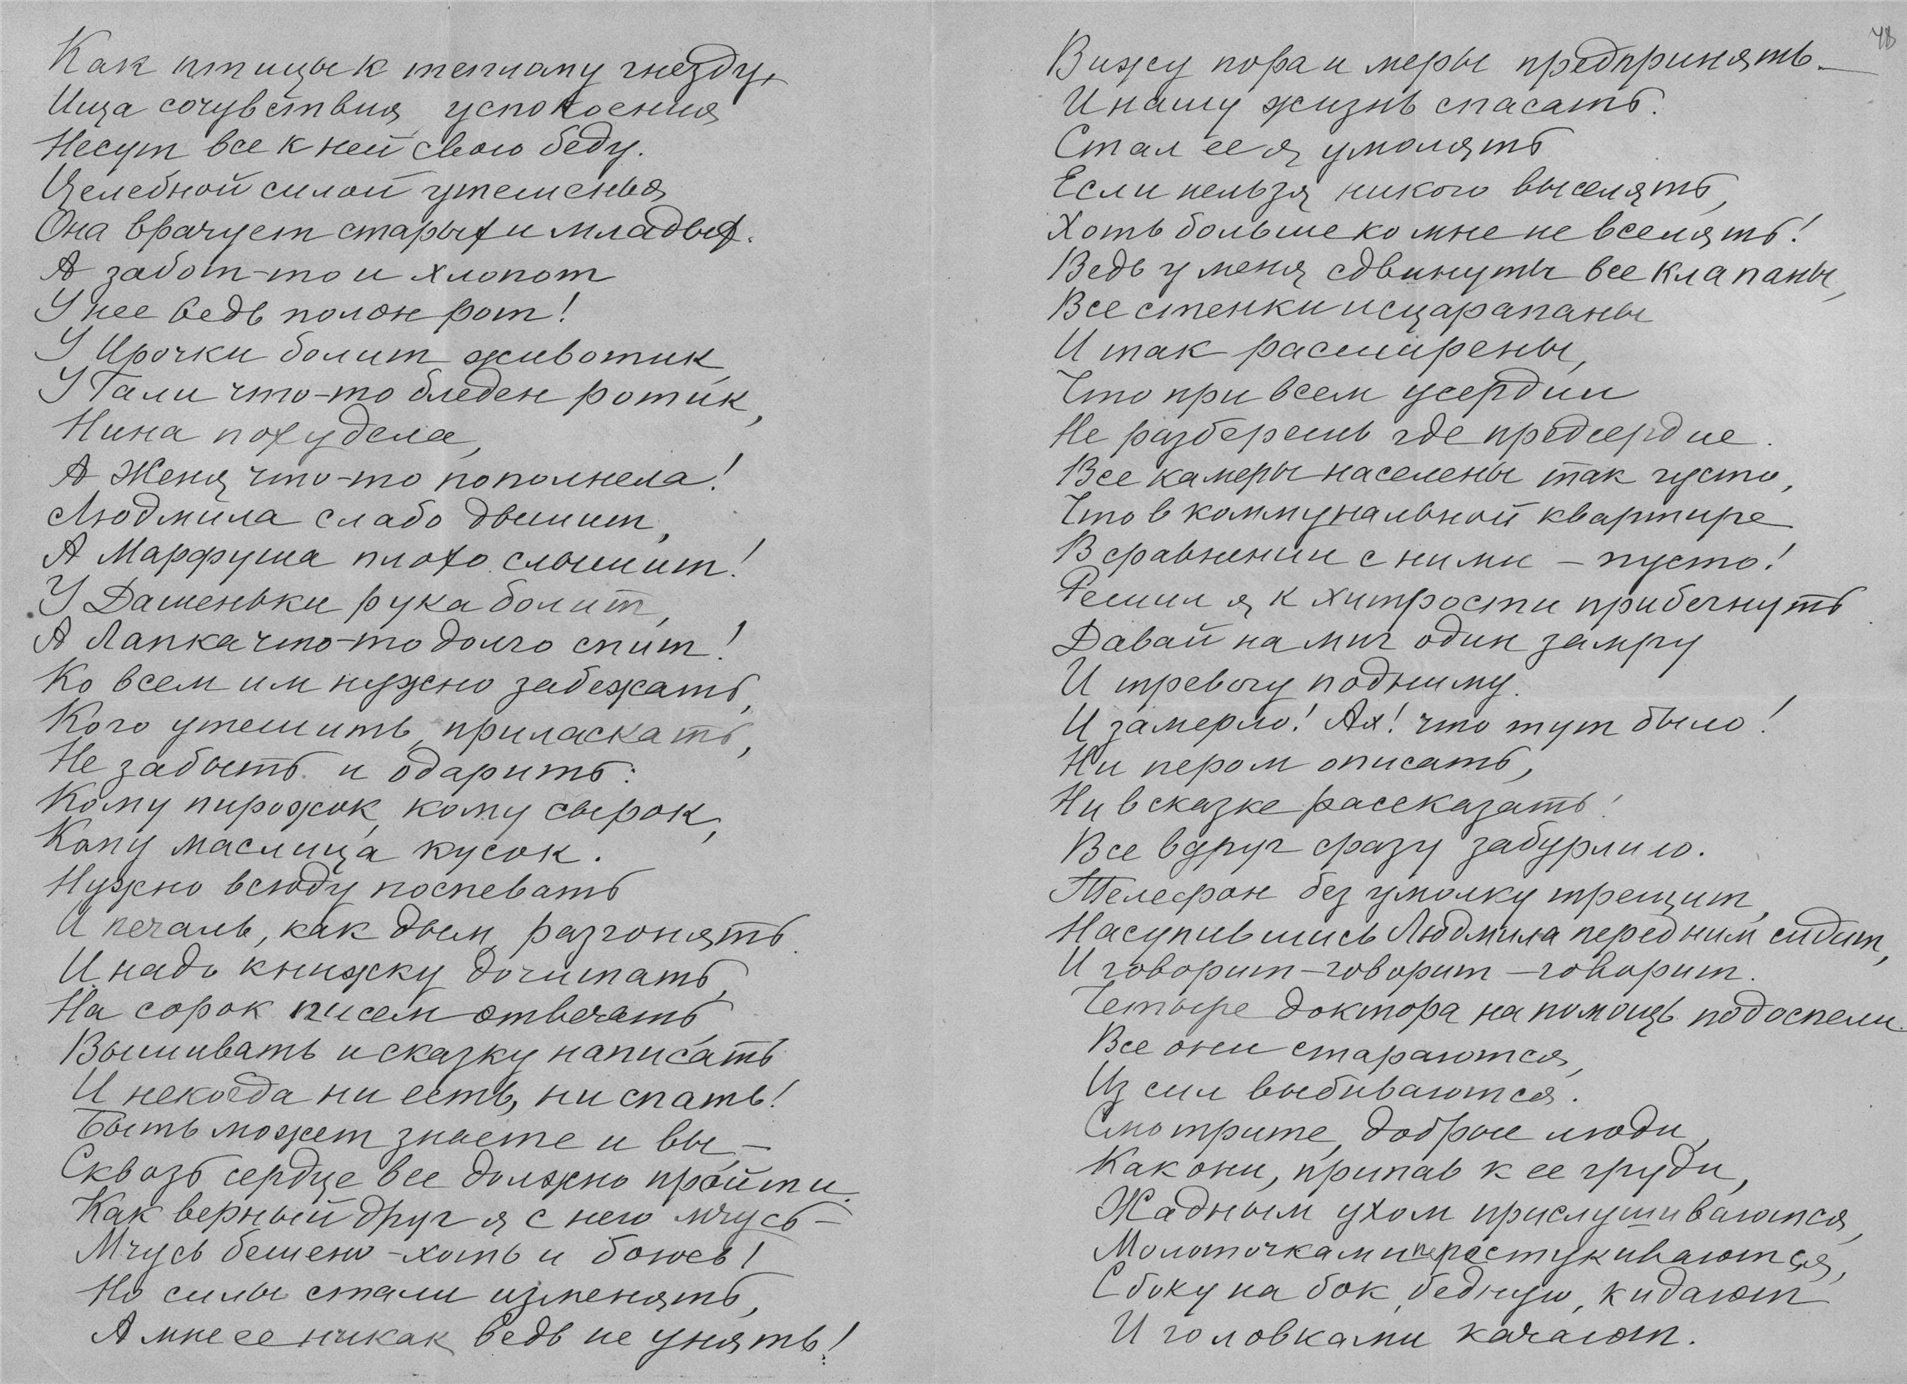 Как птицы к теплому гнезду,
Ища сочувствия, успокоения
Несут все к ней свою беду.
Целебной силой утешенья
Она врачует старых и младых.
А забот-то и хлопот
У нее ведь полон рот!
У Ирочки болит животик,
У Гали что-то бледен ротик,
Нина похудела,
А Женя что-то пополнела!
Людмила слабо дышит,
А Марфуша плохо слышит!
У Дашеньки рука болит,
А Лапка что-то долго спит!
Ко всем им нужно забежать,
Кого утешить, приласкать,
Не забыть и одарить:
Кому пирожок, кому сырок,
Кому маслица кусок.
Нужно всюду поспевать
И печаль, как дым, разгонять.
И надо книжку дочитать,
На сорок писем отвечать,
Вышивать и сказку написать
И некогда ни есть, ни спать!
Быть может знаете и вы, —
Сквозь сердце все должно пройти.
Как верный друг я с нею мчусь —
Мчусь бешено — хоть и боюсь!
Но силы стали изменять,
А мне ее никак ведь не унять!
48
Вижу пора и меры предпринять —
И нашу жизнь спасать.
Стал ее я умолять
Если нельзя никого выселять,
Хоть больше ко мне не вселять!
Ведь у меня сдвинуты все клапаны,
Все стенки исцарапаны
И так расширены,
Что при всем усердии
Не разберешь где предсердие.
Все камеры населены так густо,
Что в коммунальной квартире
В сравнении с ними — пусто!
Решил я к хитрости прибегнуть
Давай на миг один замру
И тревогу подниму.
И замерло! Ах! что тут было!
Ни пером описать,
Ни в сказке рассказать!
Все вдруг сразу забурлило.
Телефон без умолку трещит,
Насупившись Людмила перед ним сидит,
И говорит — говорит — говорит.
Четыре доктора на помощь подоспели.
Все они стараются,
Из сил выбиваются.
Смотрите, добрые люди,
Как они, припав к ее груди,
Жадным ухом прислушиваются,
Молоточками перестукиваются,
С боку на бок, бедную, кидают
И головками качают.